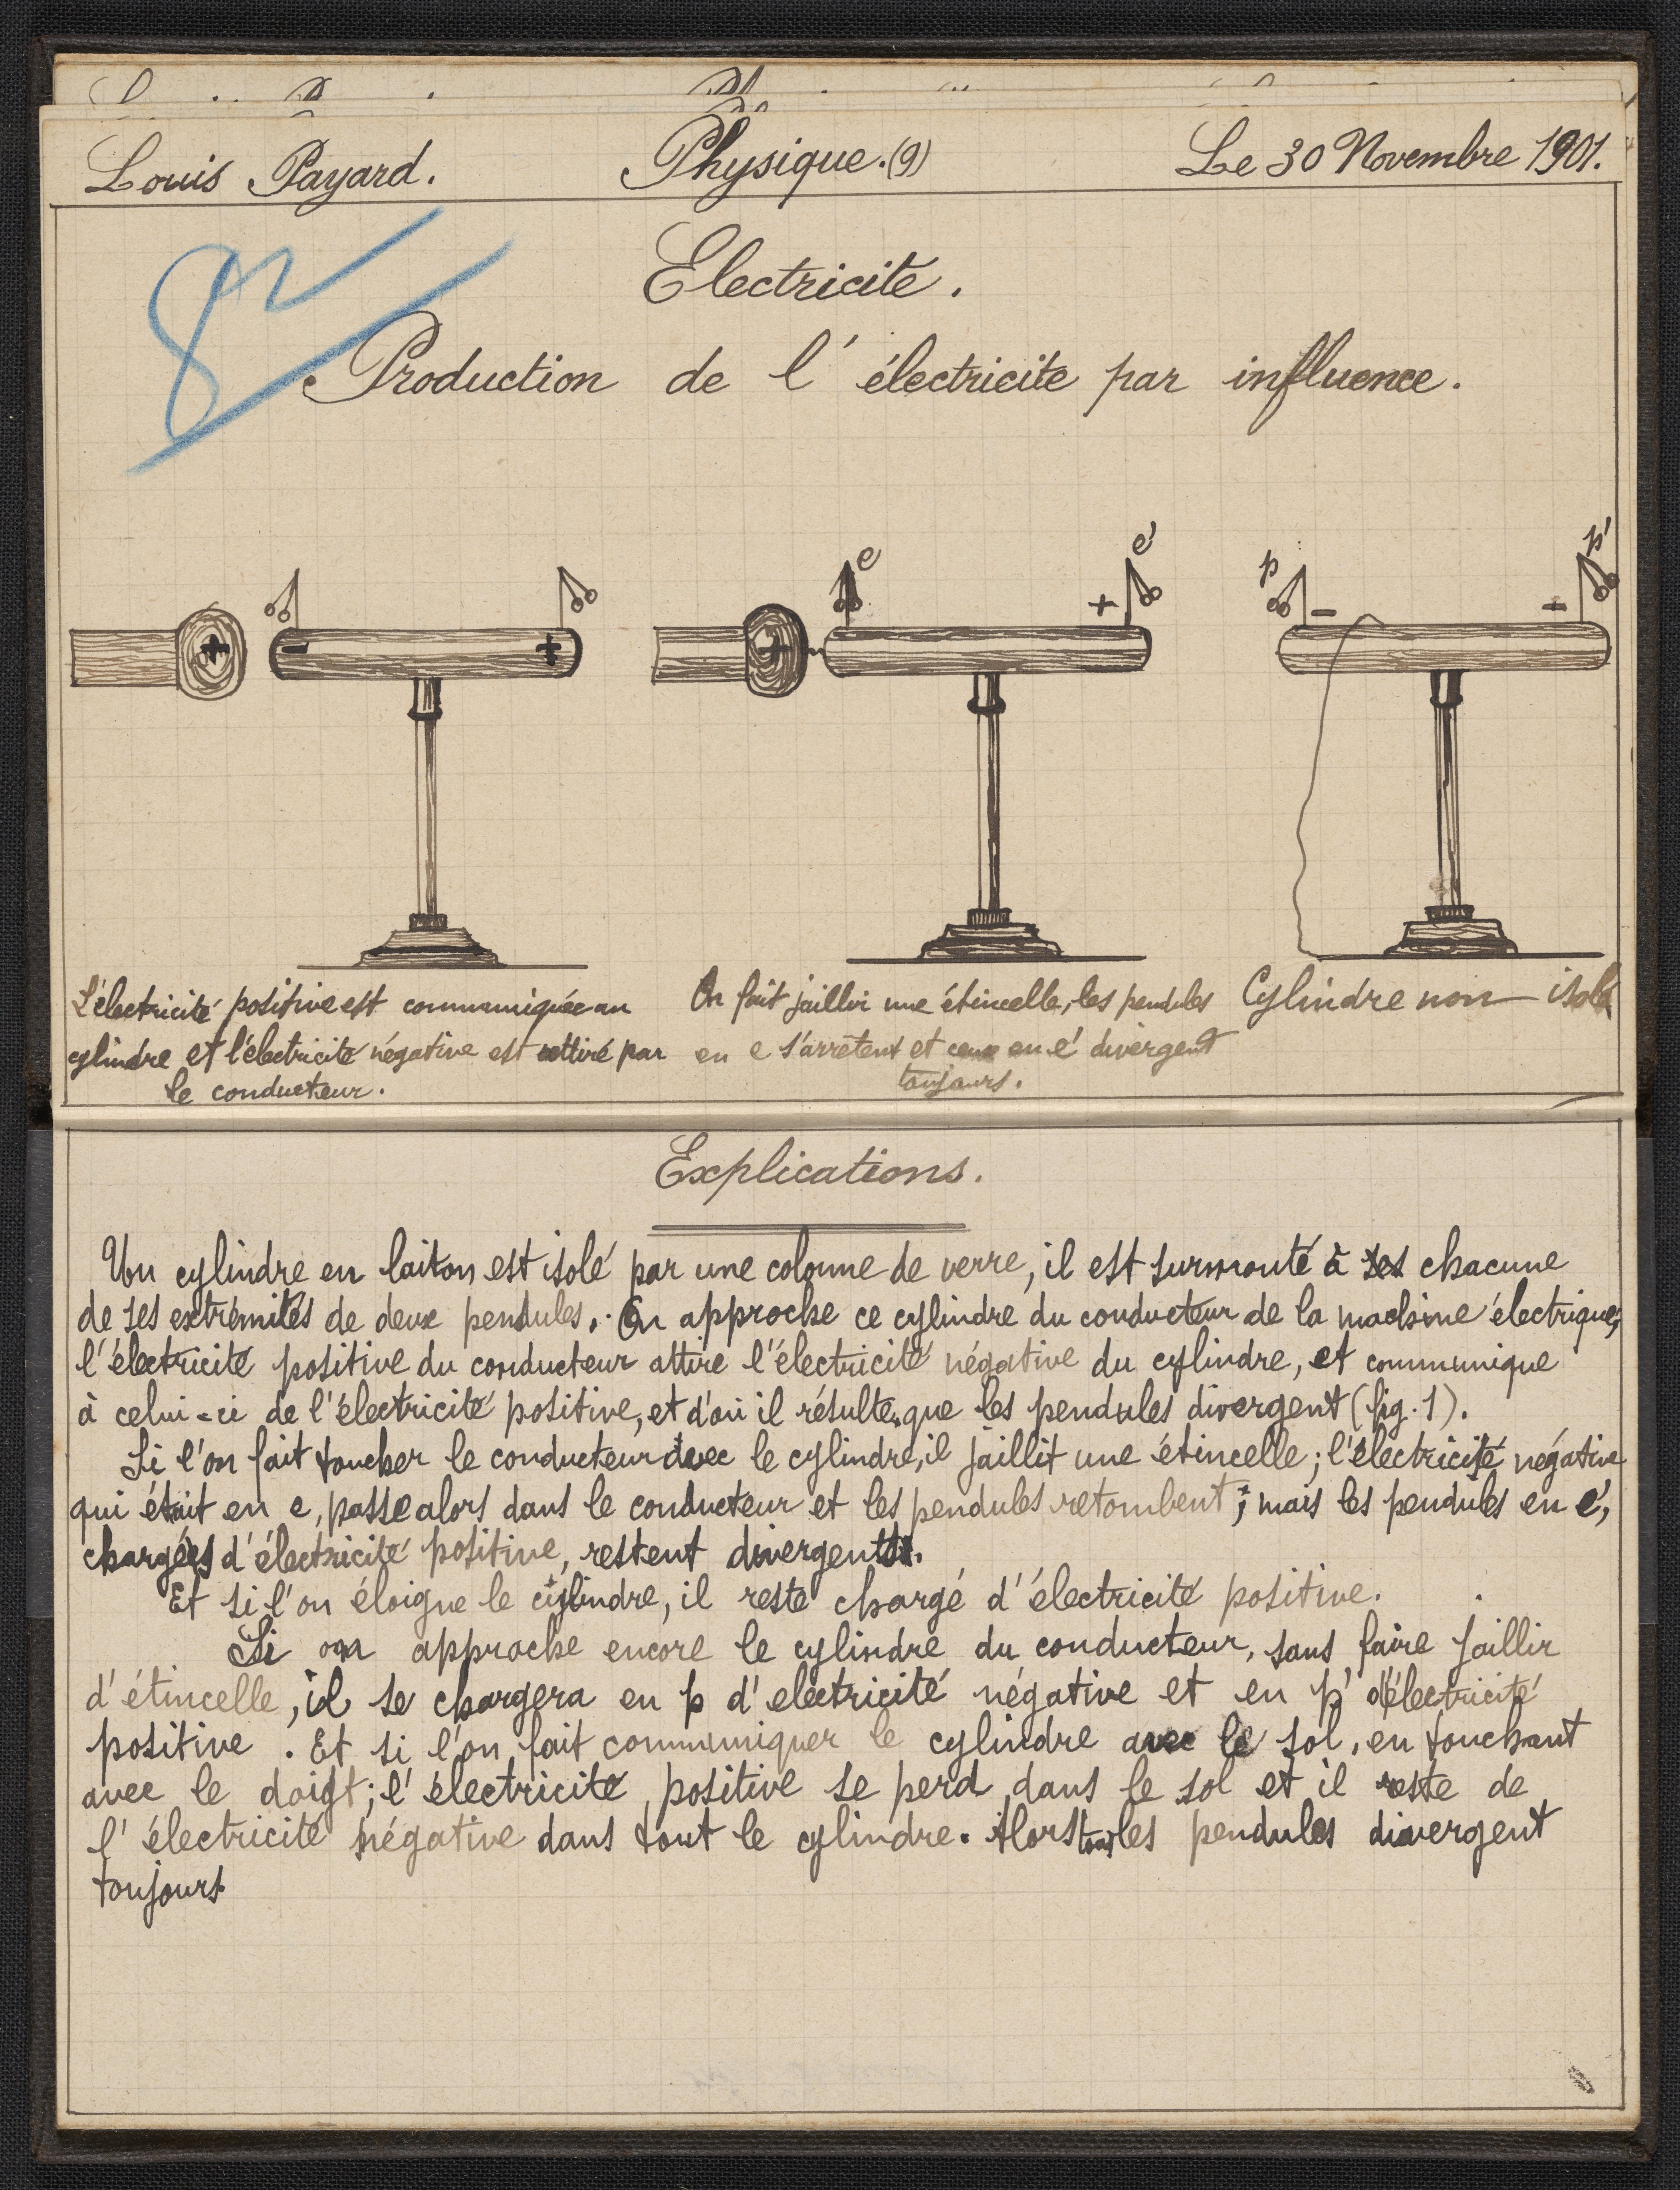 Louis Payard. Physique.(9) Le 30 Novembre 1901.
8
Electricité.
Production de l'électricite par influence.
e e' p p'
+ - -
+ - + +
L'électricité positive est communiquée au
cylindre et l'électricité négative est attiré par
le conducteur.
On fait jaillir une étincelle, les pendules
en e s'arrêtent et ceux en e' divergent
toujours.
Cylindre non isolé
Explications.
Un cylindre en laiton est isolé par une colonne de verre, il est surmonté à ses chacune
de ses extrémités de deux pendules. On approche ce cylindre du conducteur de la machine électrique,
l'électricité positive du conducteur attire l'électricité négative du cylindre, et communique
à celui-ci de l'électricité positive, et d'où il résulte que les pendules divergent (fig. 1).
Si l'on fait toucher le conducteur avec le cylindre, il jaillit une étincelle; l'électricité négative
qui était en e, passe alors dans le conducteur et les pendules retombent; mais les pendules en e',
chargées d'électricité positive, restent divergents.
Et si l'on éloigne le cylindre, il reste chargé d'électricité positive.
Si on approche encore le cylindre du conducteur, sans faire jaillir
d'étincelle, il se chargera en p d'electricité négative et en p' d'électricité
positive. Et si l'on fait communiquer le cylindre avec le sol, en touchant
avec le doigt; l'électricité positive se perd dans le sol et il reste de
l'électricité négative dans tout le cylindre. Alors tous les pendules divergent
toujours.